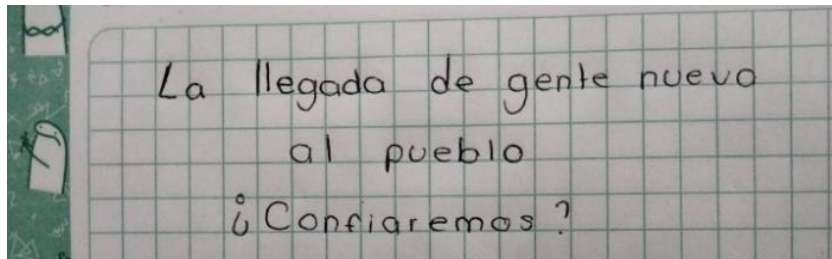 La llegada de gente nueva
al pueblo
¿Confiaremos?